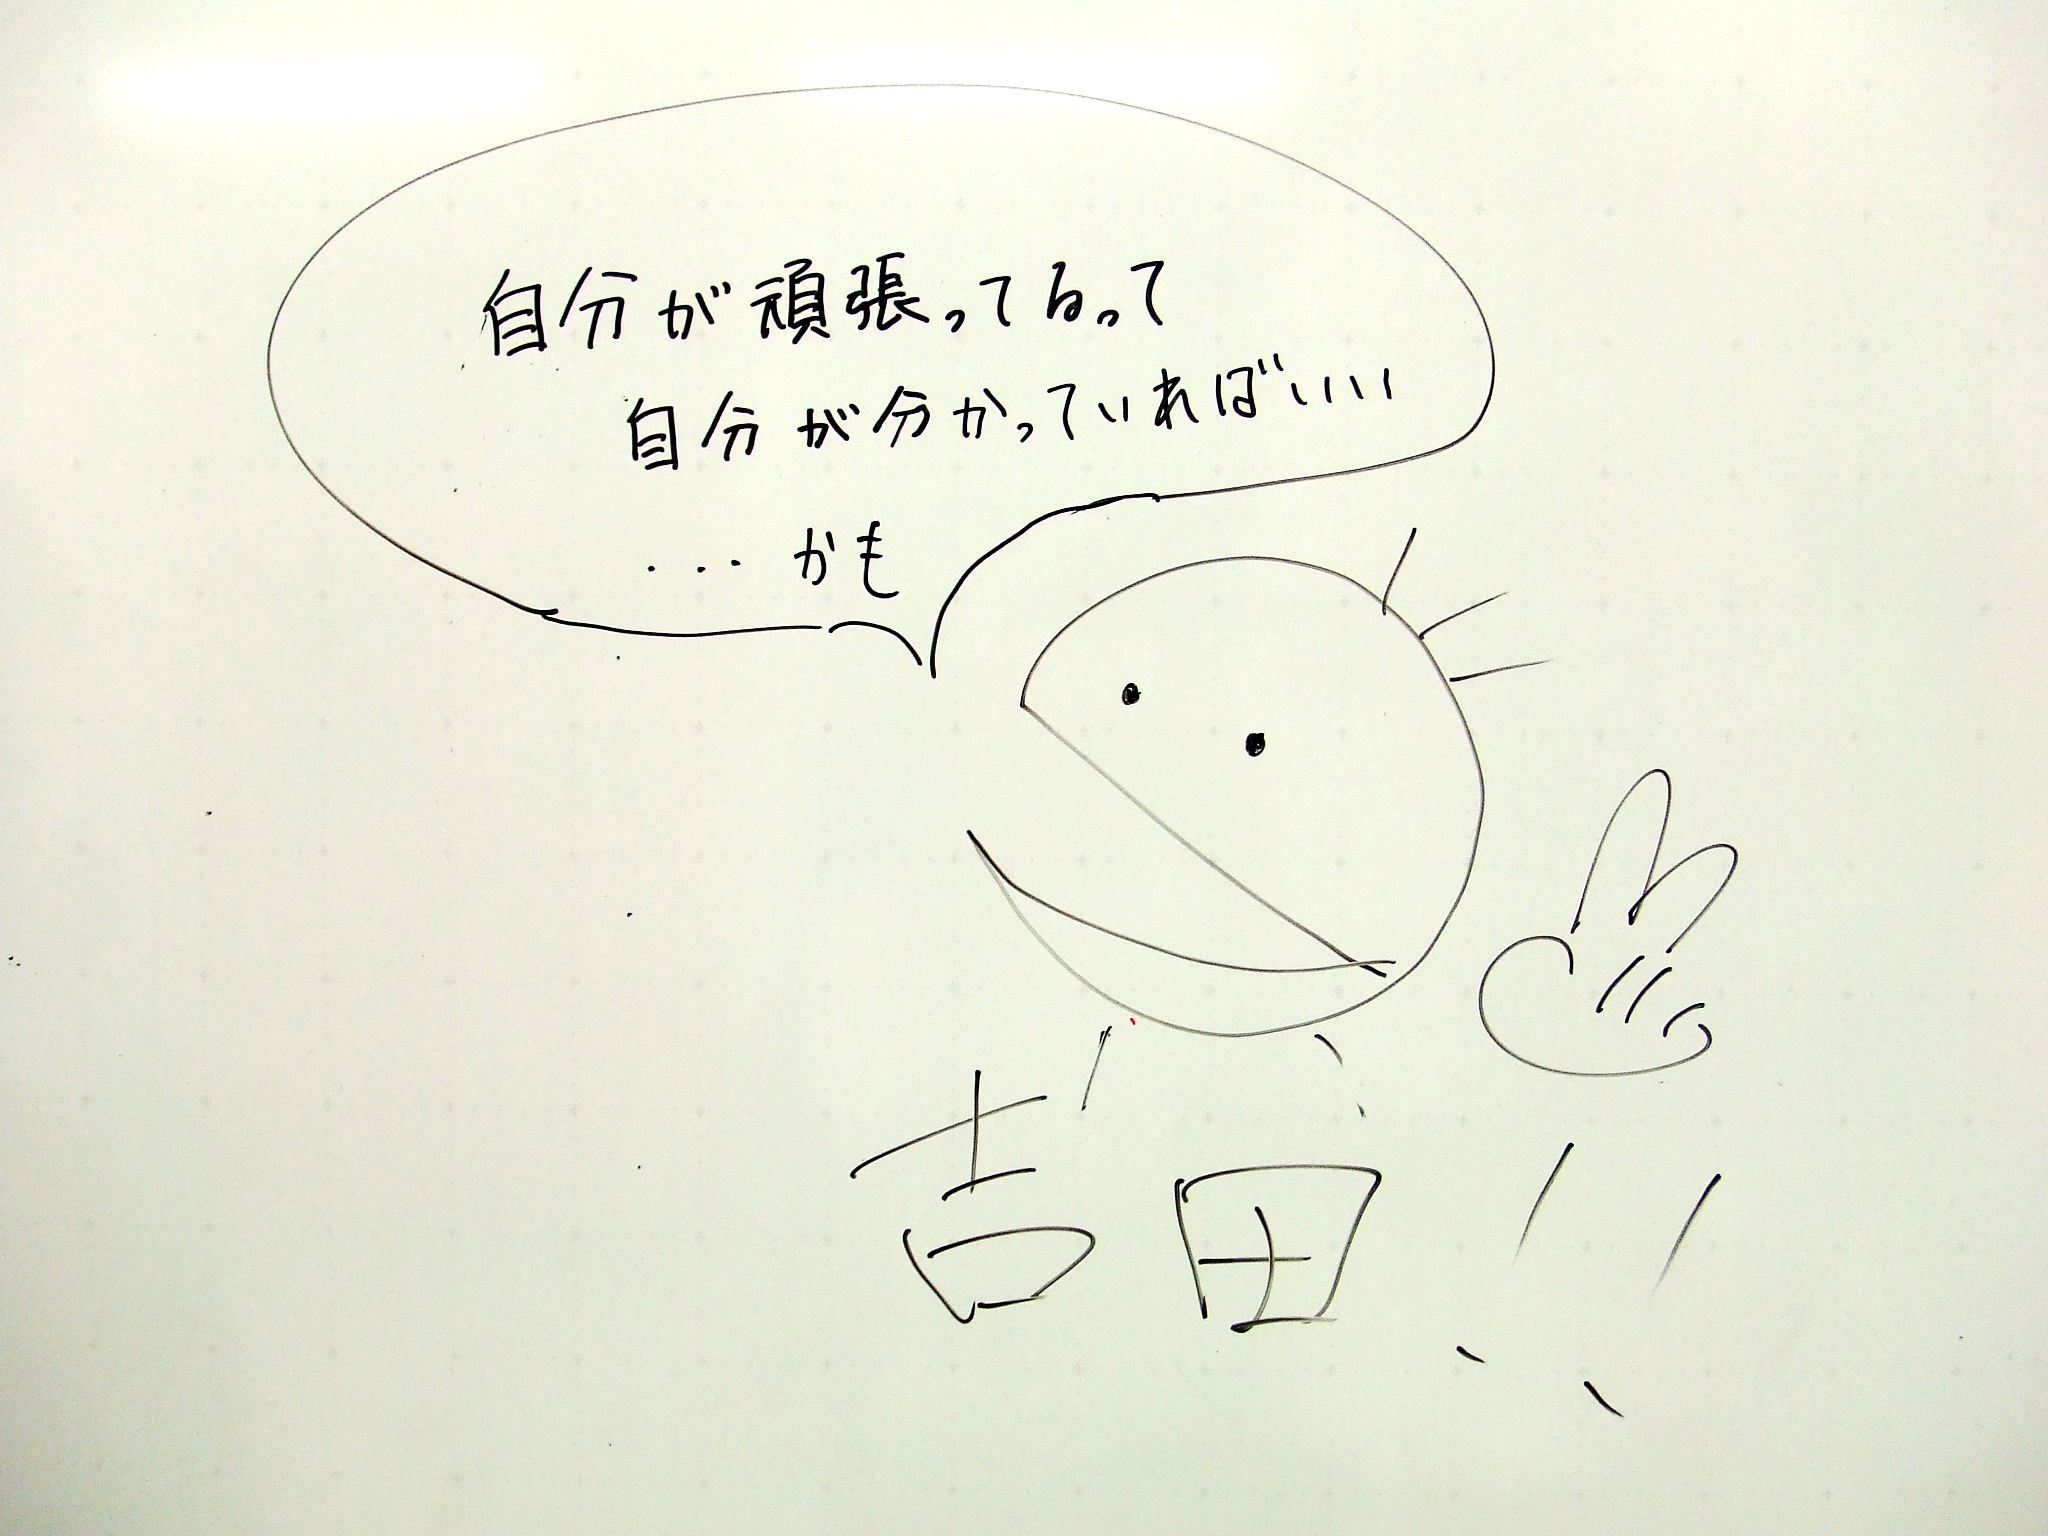 自分が頑張ってるって
自分が分かっていればいい
...かも
吉田!!